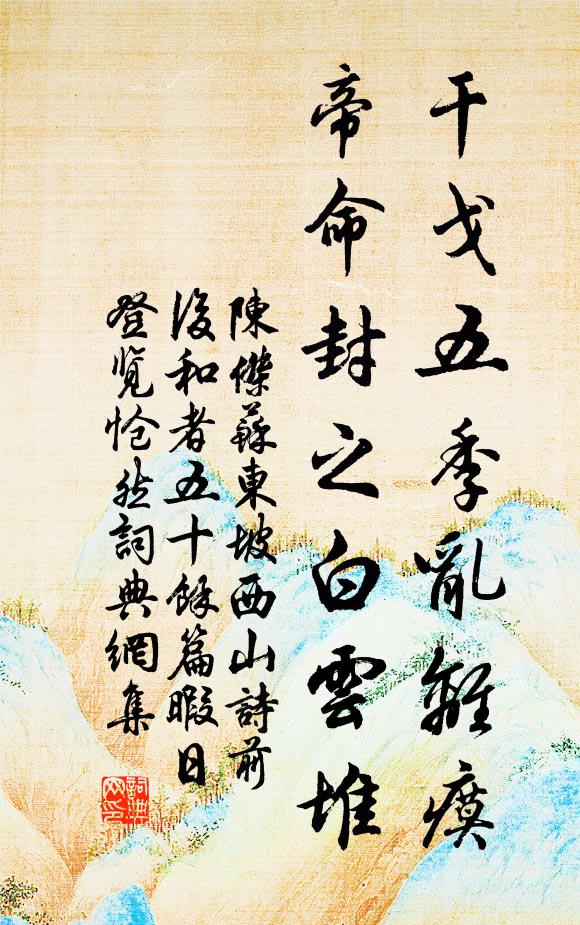 干戈五季亂離瘼
帝命封之白雲堆
陳傑蘇東坡西山詩前
後和者五十餘篇暇日
登覽愴然詞典網集